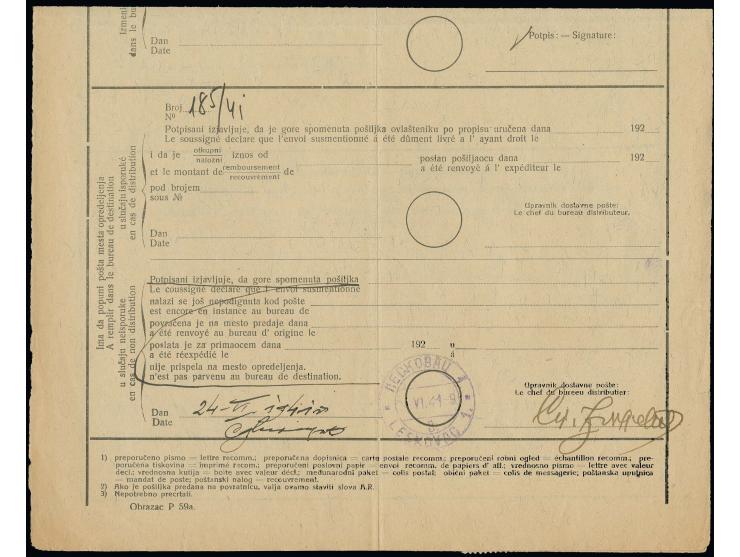 Dan
Date
Potpis: — Signature:
Broj
№ 185/41
Potpisani izjavljuje, da je gore spomenuta pošiljka ovlašteniku po propisu uručena dana 192
Le soussigné declare que l'envoi susmentionné á été dûment livré a l' ayant droit le
i da je otkupni iznos od poslan pošiljaocu dana 192
naložni
et le montant de remboursement de a été renvoyé á l' expéditeur le
recouvrement
pod brojem
sous №
Upravnik dostavne pošte:
Le chef du bureau distributeur.
Dan
Date
Ima da popuni pošta mesta opredeljenja
A remplir dans le bureau de destination
u slučaju isporuké
en cas de distribution
u slučaju neisporuke
en cas de non distribution
Potpisani izjavljuje, da gore spomenuta pošiljka
Le coussigné declare que l'envoi susmentionne
nalazi se još nepodignuta kod pošte
est encore en instance au bureau de
povraćena je na mesto predaje dana
a été renvoyé au bureau d' origine le
poslata je za primaocem dana 192 u
a été réexpédié le á
nije prispela na mesto opredeljenja.
n'est pas parvenu au bureau de destination.
LESKOVAC 1
Upravnik dostavne pošte:
Le chef du bureau distributier:
Dan
Date
24-VI 1941
1) preporučeno pismo = lettre recomm.; preporučena dopisnica = carta postale recomm.; preporučeni robni ogled = échantillon recomm.; pre-
poručena tiskovina = imprimé recom.; preporučeni poslovni papir = envoi recomm. de papiers d' aff.; vrednosno pismo = lettre avec valeur
decl.; vrednosna kutija = boite avec valeur décl.; međunarodni paket = colis postal; obični paket = colis de messagerie; poštanska uputnica
= mandat de poste; poštanski nalog = recouvrement.
2) Ako je pošiljka predana na povratnicu, valja ovamo staviti slova A.R.
3) Nepotrebno precrtati.
Obrazac P 59a.